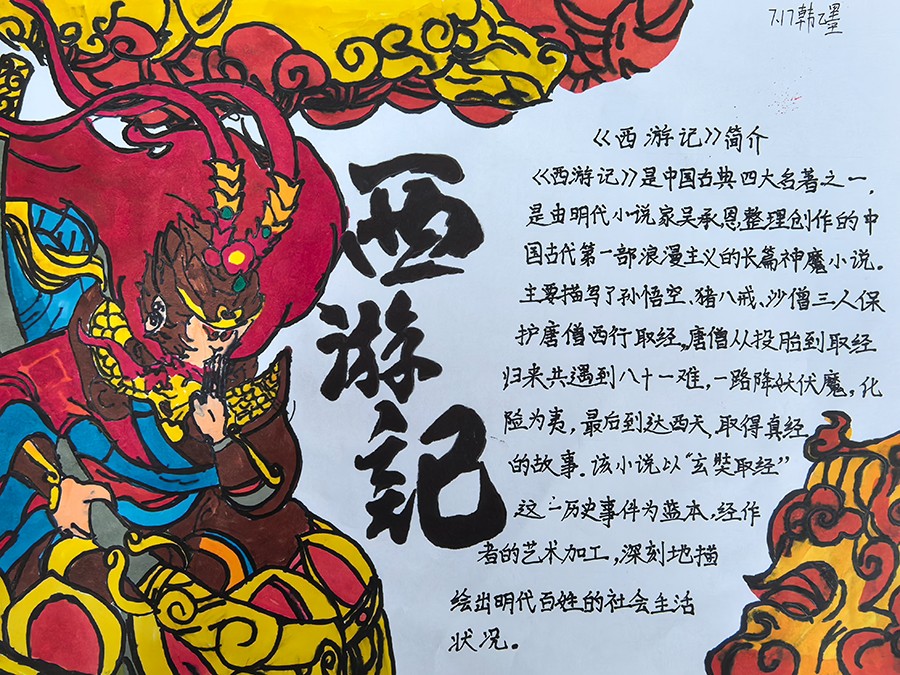 7.17韩乙墨
西游记
《西游记》简介
《西游记》是中国古典四大名著之一,
是由明代小说家吴承恩整理创作的中
国古代第一部浪漫主义的长篇神魔小说。
主要描写了孙悟空、猪八戒、沙僧三人保
护唐僧西行取经。唐僧从投胎到取经
归来共遇到八十一难,一路降妖伏魔。化
险为夷,最后到达西天,取得真经
的故事。该小说以“玄奘取经”
这一历史事件为蓝本,经作
者的艺术加工,深刻地描
绘出明代百姓的社会生活
状况。